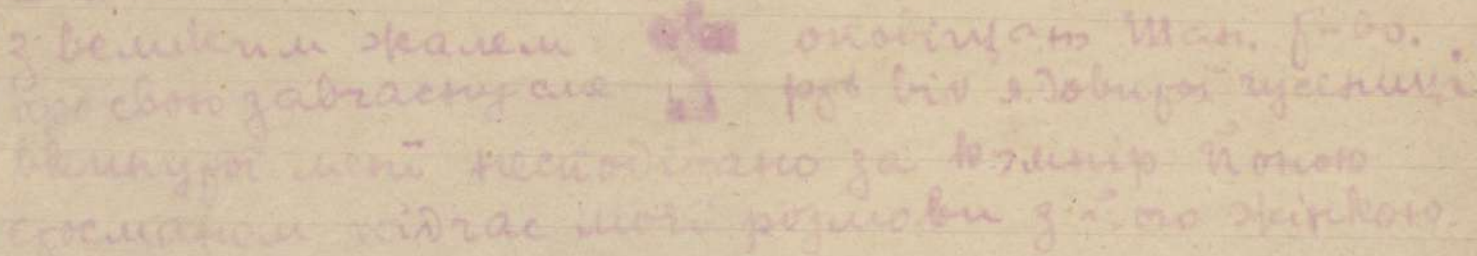 з великим жалем оповіщаю Шан.
про свою завчасну від ядовитої гусениці
вкинутої мені несподівано за комнір Йоною
підчас моєї розмови з його жінкою.